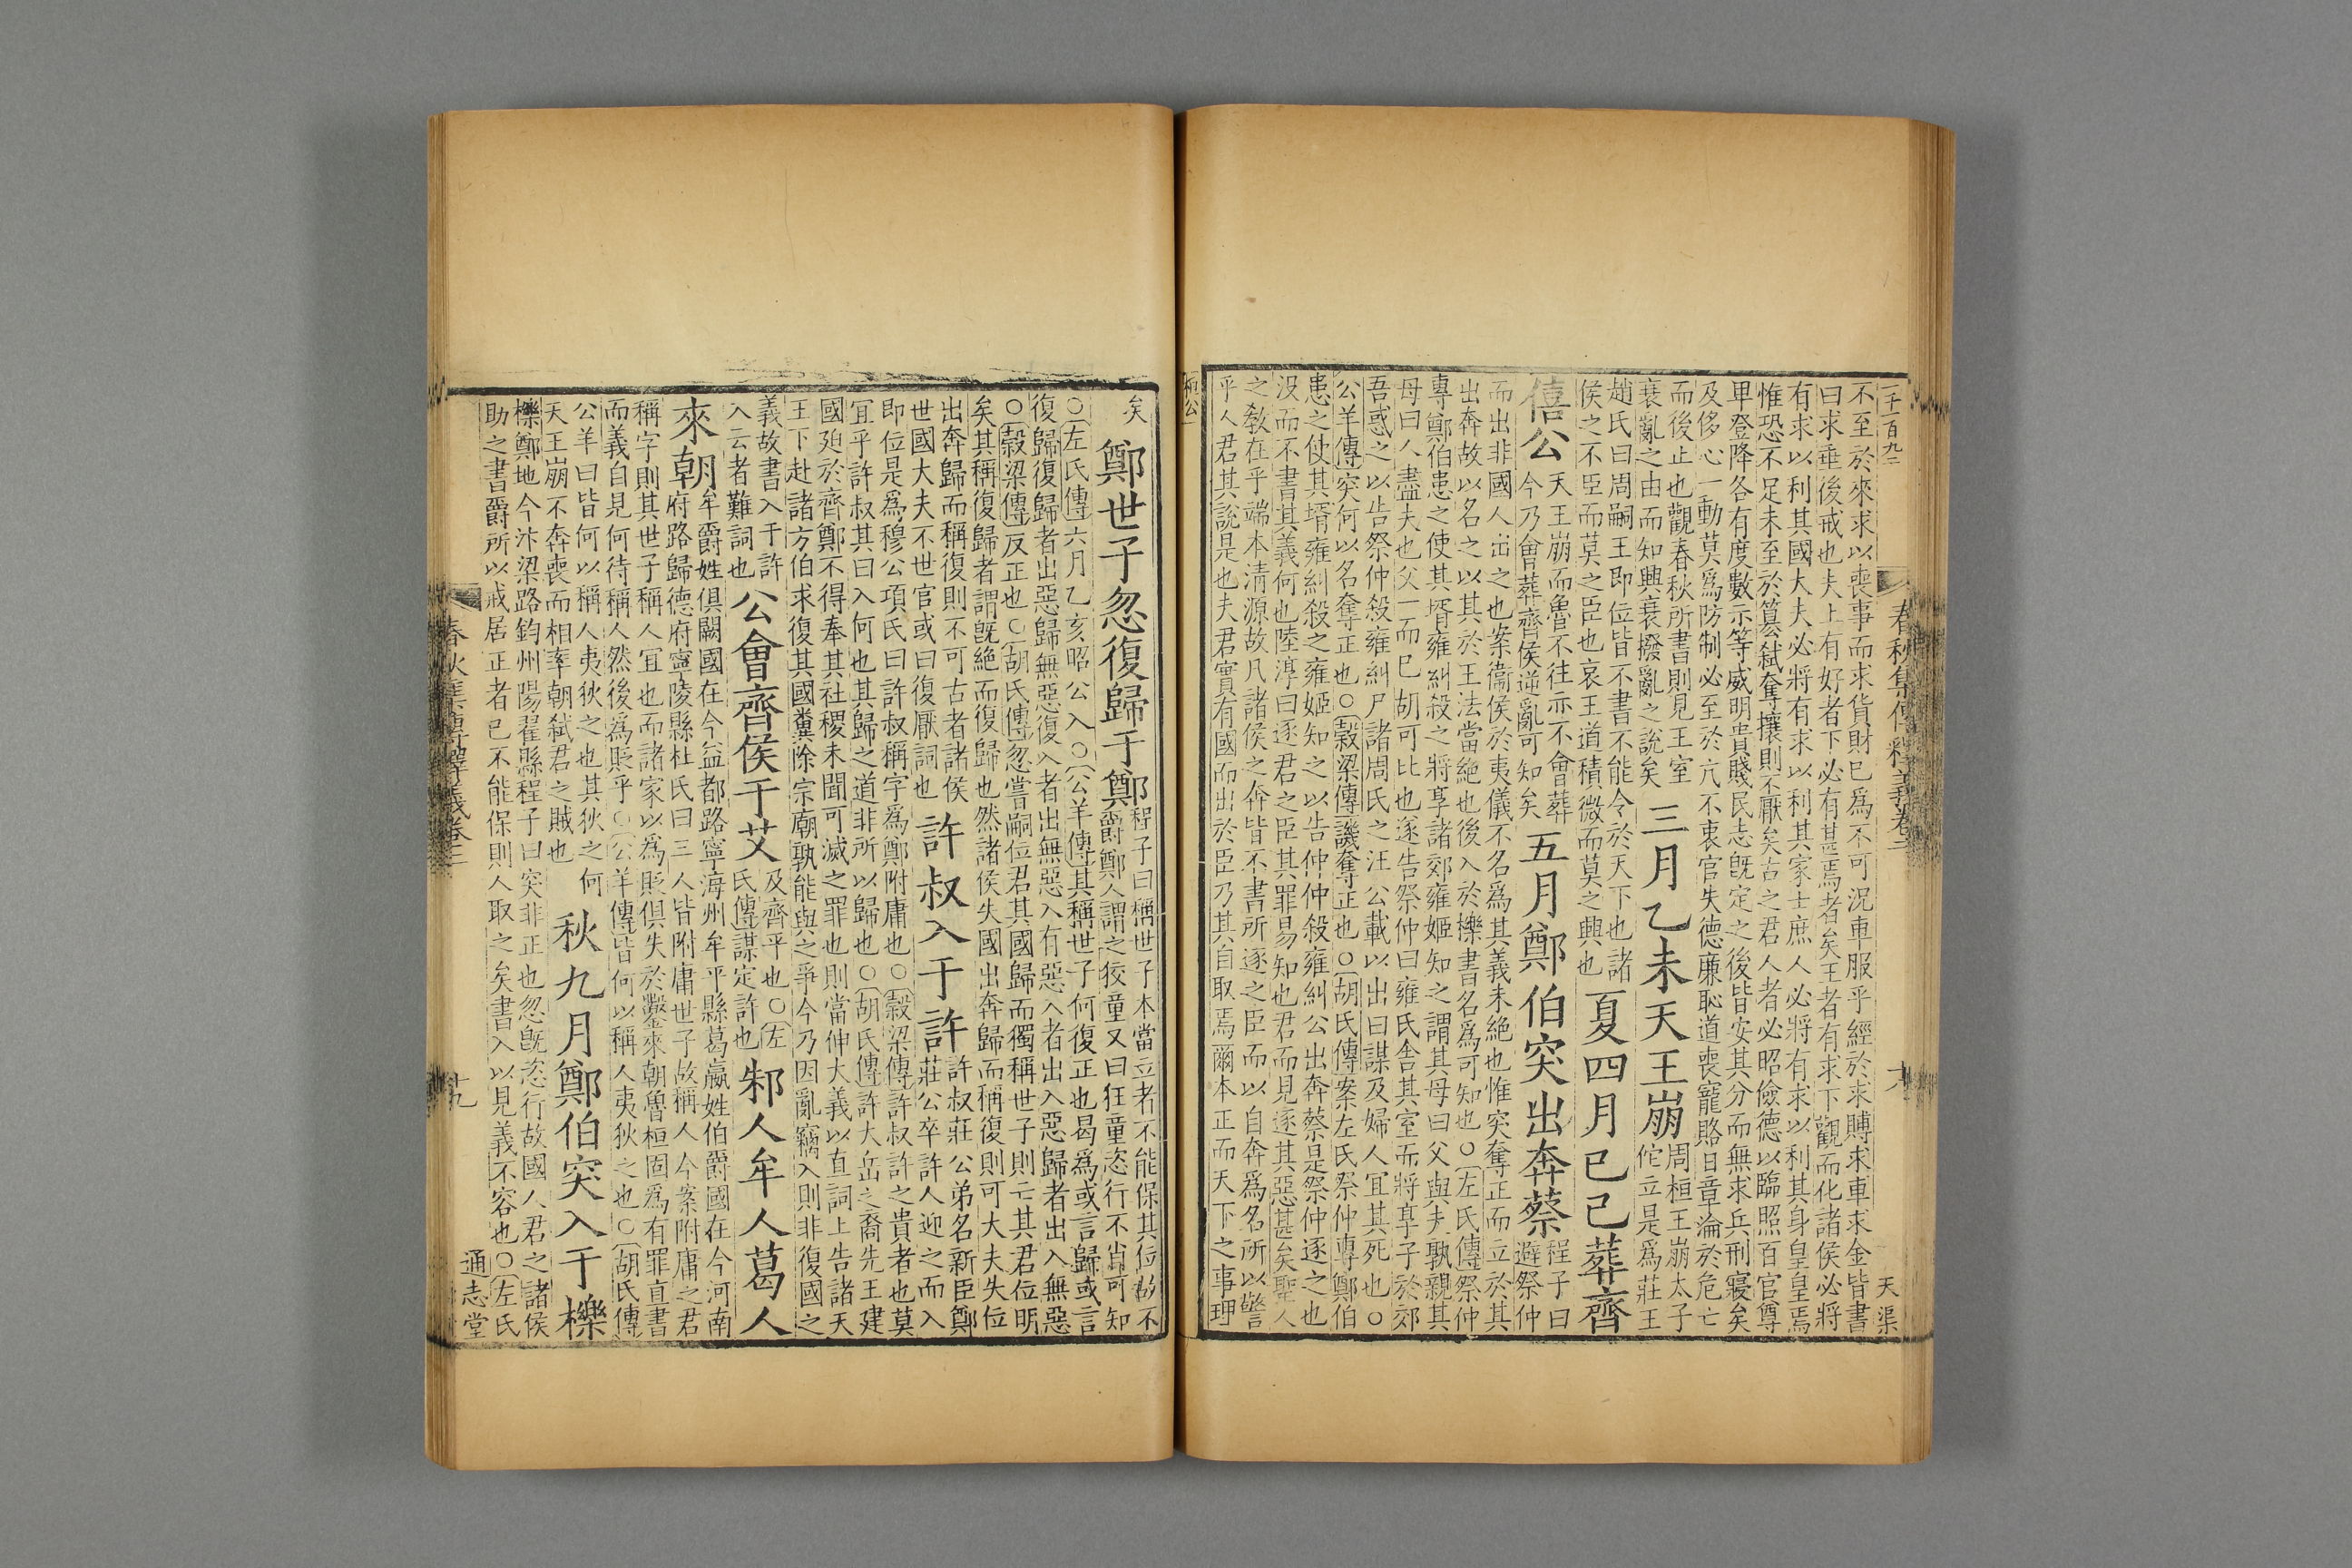 不至於來求以喪事而求貨財已為不可況車服乎經於求賻求車求金皆書
曰求垂後戒也夫上有好者下必有甚焉者矣王者有求下觀而化諸侯必將
有求以利其國大夫必將有求以利其家士庶人必將有求以利其身皇皇焉
惟恐不足未至於篡弑奪攘則不厭矣古之君人者必昭儉德以臨照百官尊
卑登降各有度數示等威明貴賤民志既定之後皆安其分而無求兵刑寢矣
及侈心一動莫為防制必至於亢不衷官失德廉恥道喪寵賂日章淪於危亡
而後止也觀春秋所書則見王室
衰亂之由而知興衰撥亂之說矣
三月乙未天王崩
周桓王崩太子
佗立是為莊王
趙氏曰周嗣王即位皆不書不能令於天下也諸
侯之不臣而莫之臣也哀王道積微而莫之興也
夏四月己巳葬齊
僖公
天王崩而魯不往亦不會葬
今乃會葬齊侯逆亂可知矣
五月鄭伯突出奔蔡
程子曰
避祭仲
而出非國人出之也案衞侯於夷儀不名為其義未絶也惟突奪正而立於其
出奔故以名之以其於王法當絶也後入於櫟書名為可知也○左氏傳祭仲
專鄭伯患之使其壻雍糾殺之將享諸郊雍姬知之謂其母曰父與夫孰親其
母曰人盡夫也父一而已胡可比也遂告祭仲曰雍氏舍其室而將享子於郊
吾惑之以告祭仲殺雍糾尸諸周氏之汪公載以出曰謀及婦人宜其死也○
公羊傳突何以名奪正也○穀梁傳譏奪正也○胡氏傳案左氏祭仲專鄭伯
患之使其壻雍糾殺之雍姬知之以告仲仲殺雍糾公出奔蔡是祭仲逐之也
没而不書其義何也陸淳曰逐君之臣其罪易知也君而見逐其惡甚矣聖人
之敎在乎端本清源故凡諸侯之奔皆不書所逐之臣而以自奔為名所以警
乎人君其說是也夫君實有國而出於臣乃其自取焉爾本正而天下之事理
矣
鄭世子忽復歸于鄭
程子曰稱世子本當立者不能保其位故不
爵鄭人謂之狡童又曰狂童恣行不肖可知
○左氏傳六月乙亥昭公入○公羊傳其稱世子何復正也曷為或言歸或言
復歸復歸者出惡歸無惡復入者出無惡入有惡入者出入惡歸者出入無惡
○穀梁傳反正也○胡氏傳忽嘗嗣位君其國歸而獨稱世子則亡其君位明
矣其稱復歸者謂既絶而復歸也然諸侯失國出奔歸而稱復則可大夫失位
出奔歸而稱復則不可古者諸侯
世國大夫不世官或曰復厭詞也
許叔入于許
許叔莊公弟名新臣鄭
莊公卒許人迎之而入
即位是為穆公項氏曰許叔稱字為鄭附庸也○穀梁傳許叔許之貴者也莫
宜乎許叔其曰入何也其歸之道非所以歸也○胡氏傳許大岳之裔先王建
國廹於齊鄭不得奉其社稷未聞可滅之罪也則當伸大義以直詞上告諸天
王下赴諸方伯求復其國糞除宗廟孰能與之爭今乃因亂竊入則非復國之
義故書入于許
入云者難詞也
公會齊侯于艾
及齊平也○左
氏傳謀定許也
邾人牟人葛人
來朝
牟爵姓俱闕國在今益都路寧海州牟平縣葛嬴姓伯爵國在今河南
府路歸德府寧陵縣杜氏曰三人皆附庸世子故稱人今案附庸之君
稱字則其世子稱人宜也而諸家以為貶俱失於鑿來朝魯桓固為有罪直書
而義自見何待稱人然後為貶乎○公羊傳皆何以稱人夷狄之也○胡氏傳
公羊曰皆何以稱人夷狄之也其狄之何
天王崩不奔喪而相率朝弑君之賊也
秋九月鄭伯突入于櫟
櫟鄭地今汴梁路鈞州陽翟縣程子曰突非正也忽既恣行故國人君之諸侯
助之書爵所以戒居正者已不能保則人取之矣書入以見義不容也○左氏
春秋集傳釋義卷三
十九
通志堂